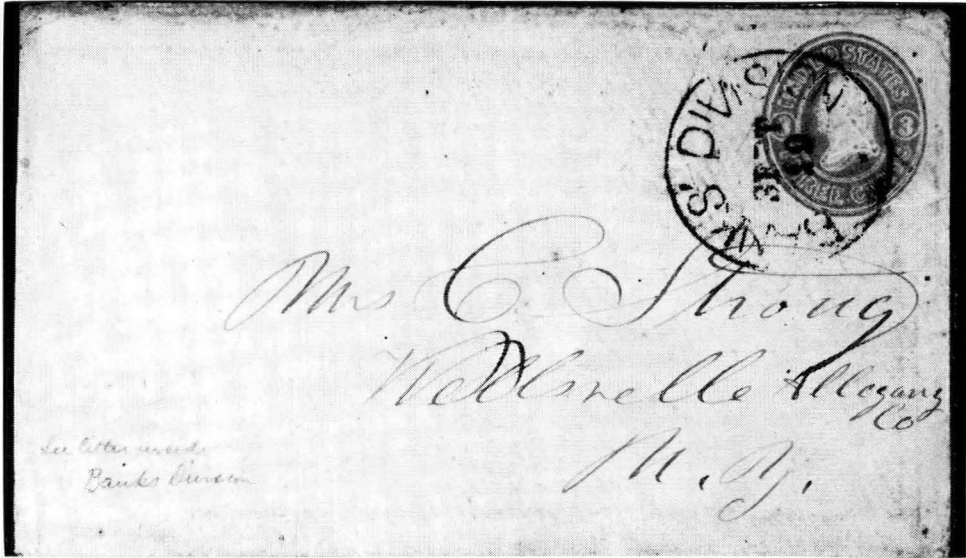 UNITED STATES
3
S' DIVISION
SEPT
Mrs C. Strong
Wellsville Allegany
Co
N. Y.
See letter inside
Banks Division